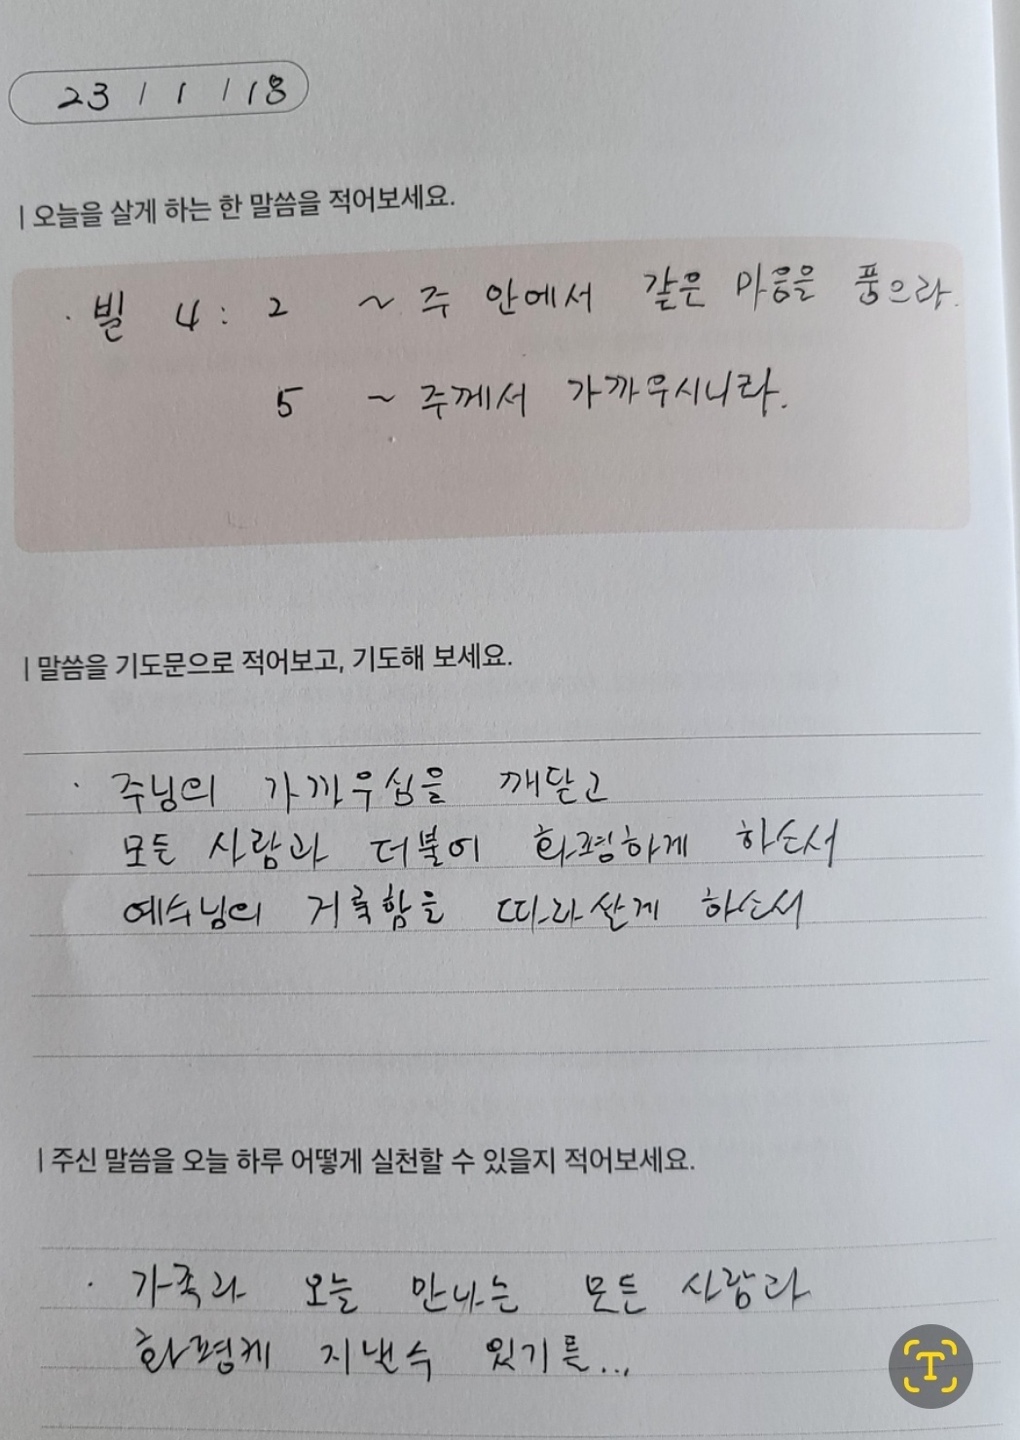 23 / 1 / 18
| 오늘을 살게 하는 한 말씀을 적어보세요.
· 빌 4 : 2 ~ 주 안에서 같은 마음을 품으라.
5 ~ 주께서 가까우시니라.
| 말씀을 기도문으로 적어보고, 기도해 보세요.
· 주님의 가까우심을 깨닫고
모든 사람과 더불어 화평하게 하소서
예수님의 거룩함을 따라 살게 하소서
| 주신 말씀을 오늘 하루 어떻게 실천할 수 있을지 적어보세요.
· 가족과 오늘 만나는 모든 사람과
화평케 지낼수 있기를...